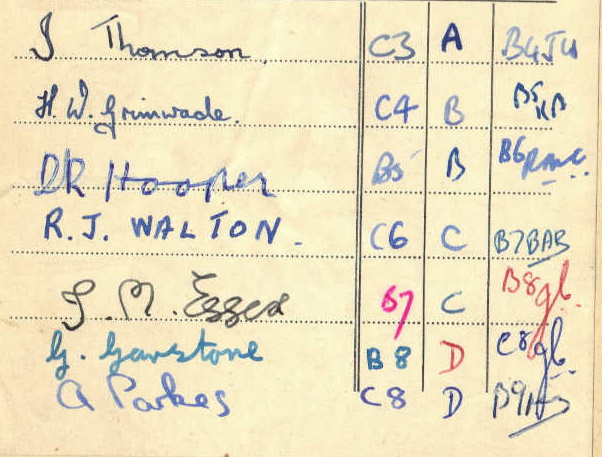 J Thomson C3 A B4JU
H.W. Grimwade. C4 B B5
DR Hooper B5 B B6
R.J. WALTON. C6 C B7BAB
J. M. Essex B7 C B8gb.
G. Garstone B8 D C8gb.
A Parkes C8 D